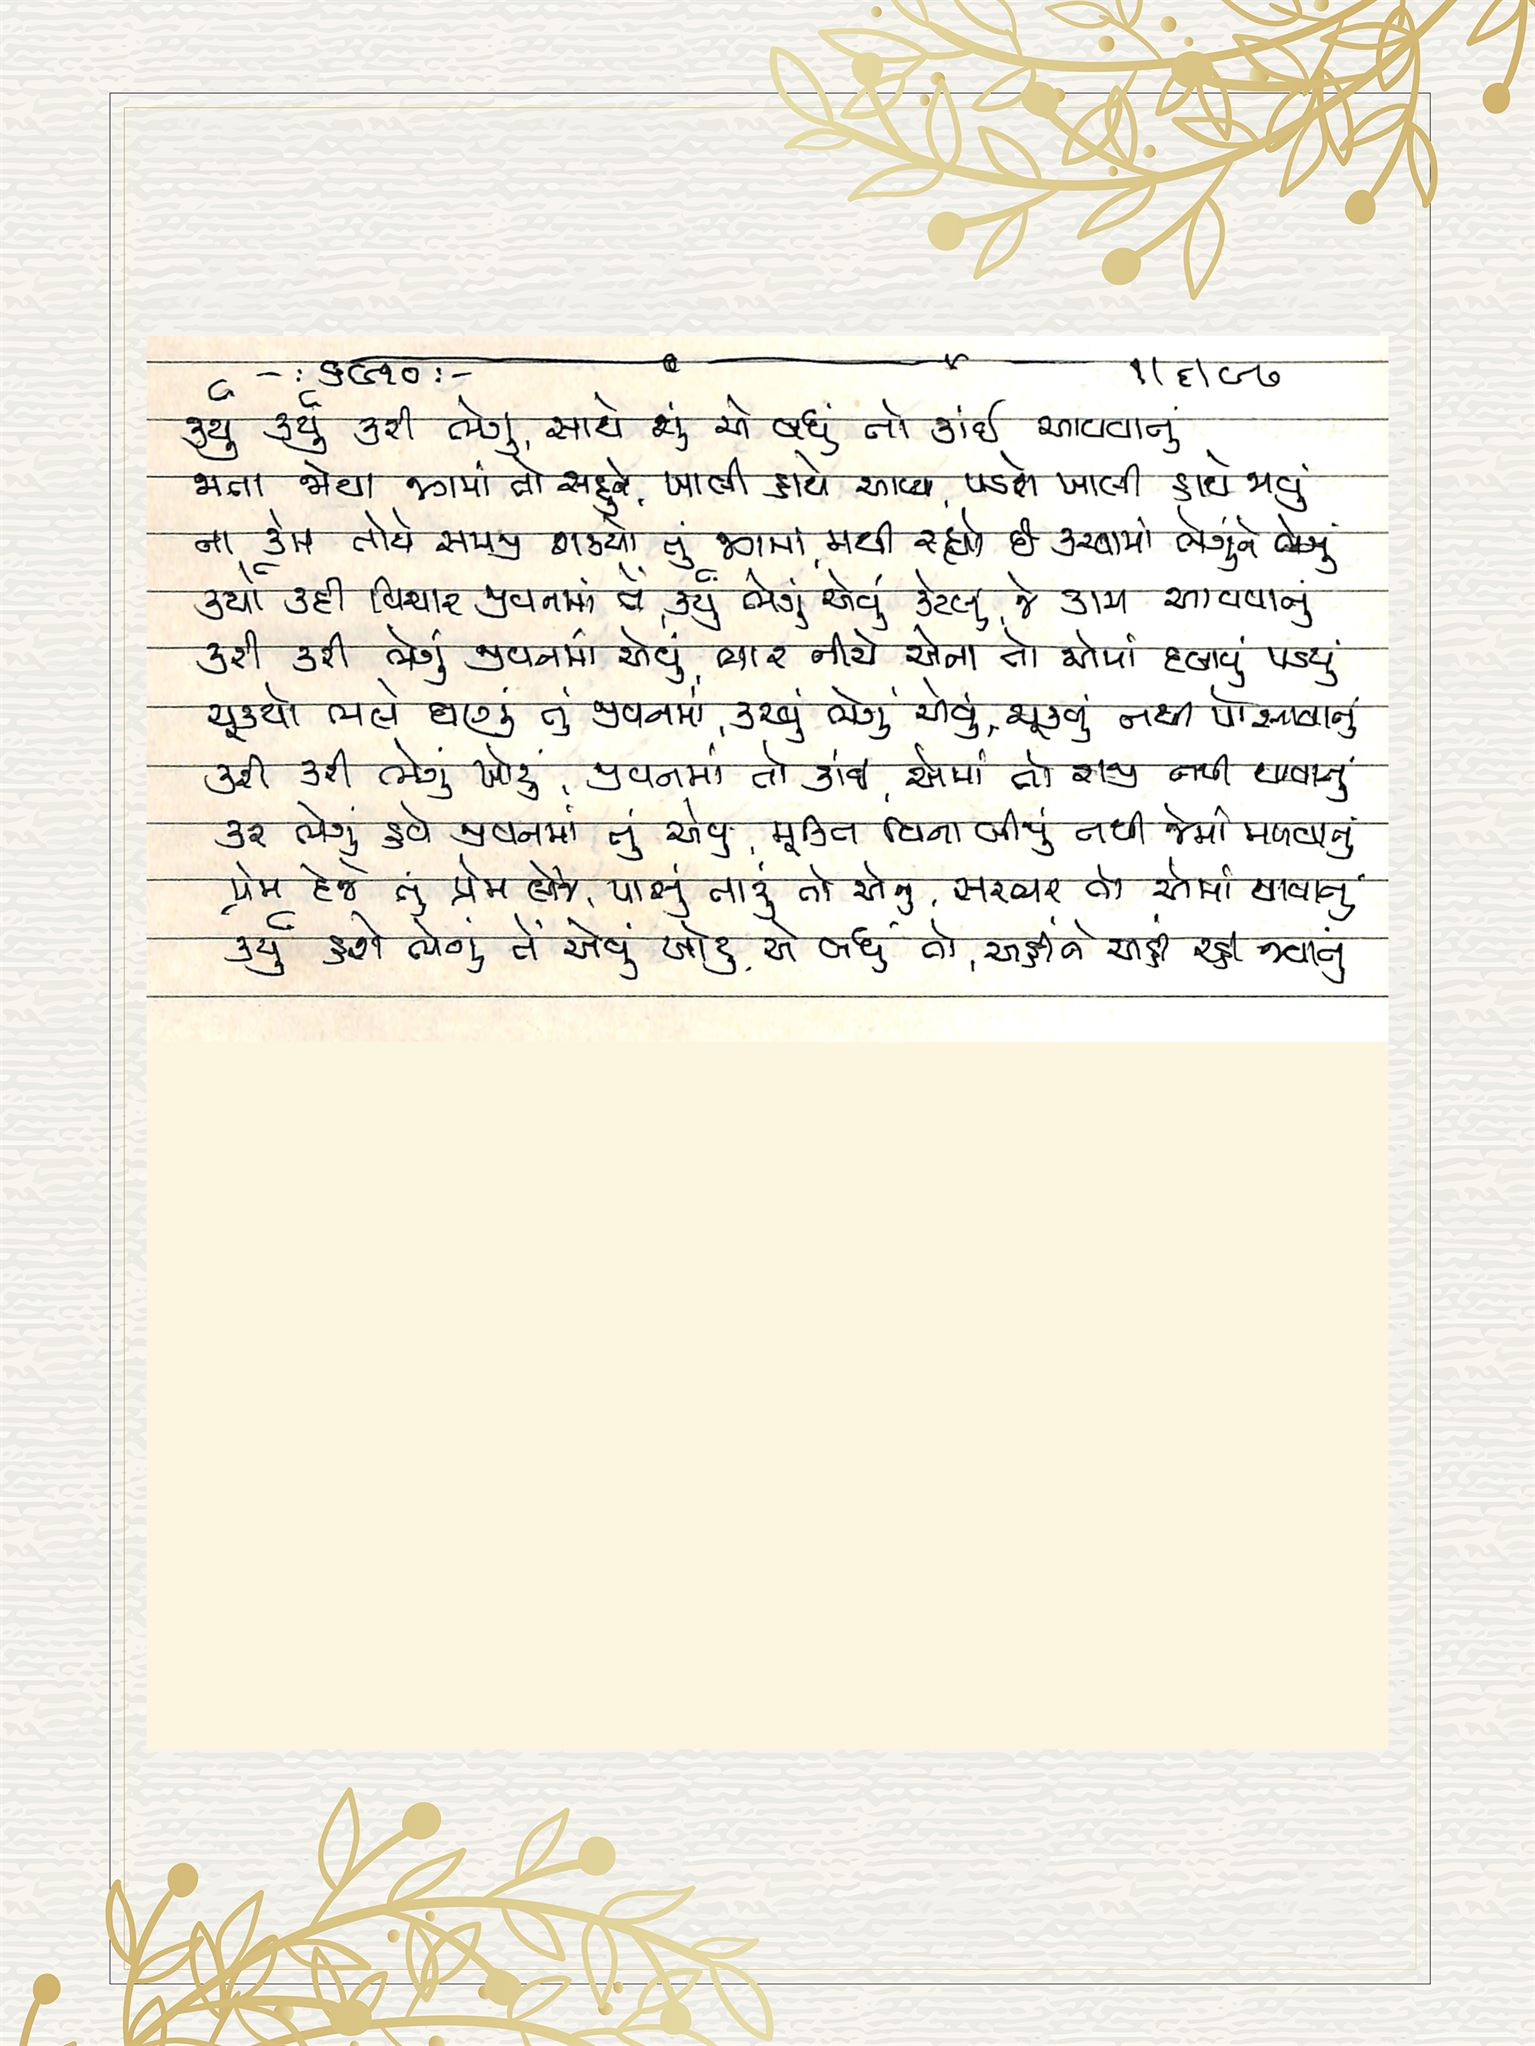 -: ૬૮૧૦ :- ૧।૬।૯૭
કર્યું કર્યું કરી ભેગું, સાથે શું એ બધું તો કાંઈ આવવાનું
જાતા જોયા જગમાં તો સહુને, ખાલી હાથે આવ્યા, પડશે ખાલી હાથે જાવું
ના કેમ તોયે સમજી શક્યો તું જગમાં, મથી રહ્યો છે કરવામાં ભેગુંને ભેગું
કર્યો કદી વિચાર જીવનમાં તેં, કર્યું ભેગું એવું કેટલું, જે કામ આવવાનું
કરી કરી ભેગું જીવનમાં એવું, ભાર નીચે એના તો એમાં દબાવું પડયું
ચૂક્યો ભલે ઘણું તું જીવનમાં, કરવું ભેગું એવું, ચૂકવું નથી પોસાવાનું
કરી કરી ભેગું ખોટું, જીવનમાં તો કાંઈ, એમાં તો રાજી નથી થાવાનું
કર ભેગું હવે જીવનમાં તું એવું, મૂક્તિ વિના બીજું નથી જેમાં મળવાનું
પ્રેમ દેજે તું પ્રેમ લેજે, પાસું તારું તો એનું, સરભર તો એમાં થાવાનું
કર્યું હશે ભેગું તેં એવું ખોટું, એ બધું તો, અહીંને અહીં રહી જવાનું